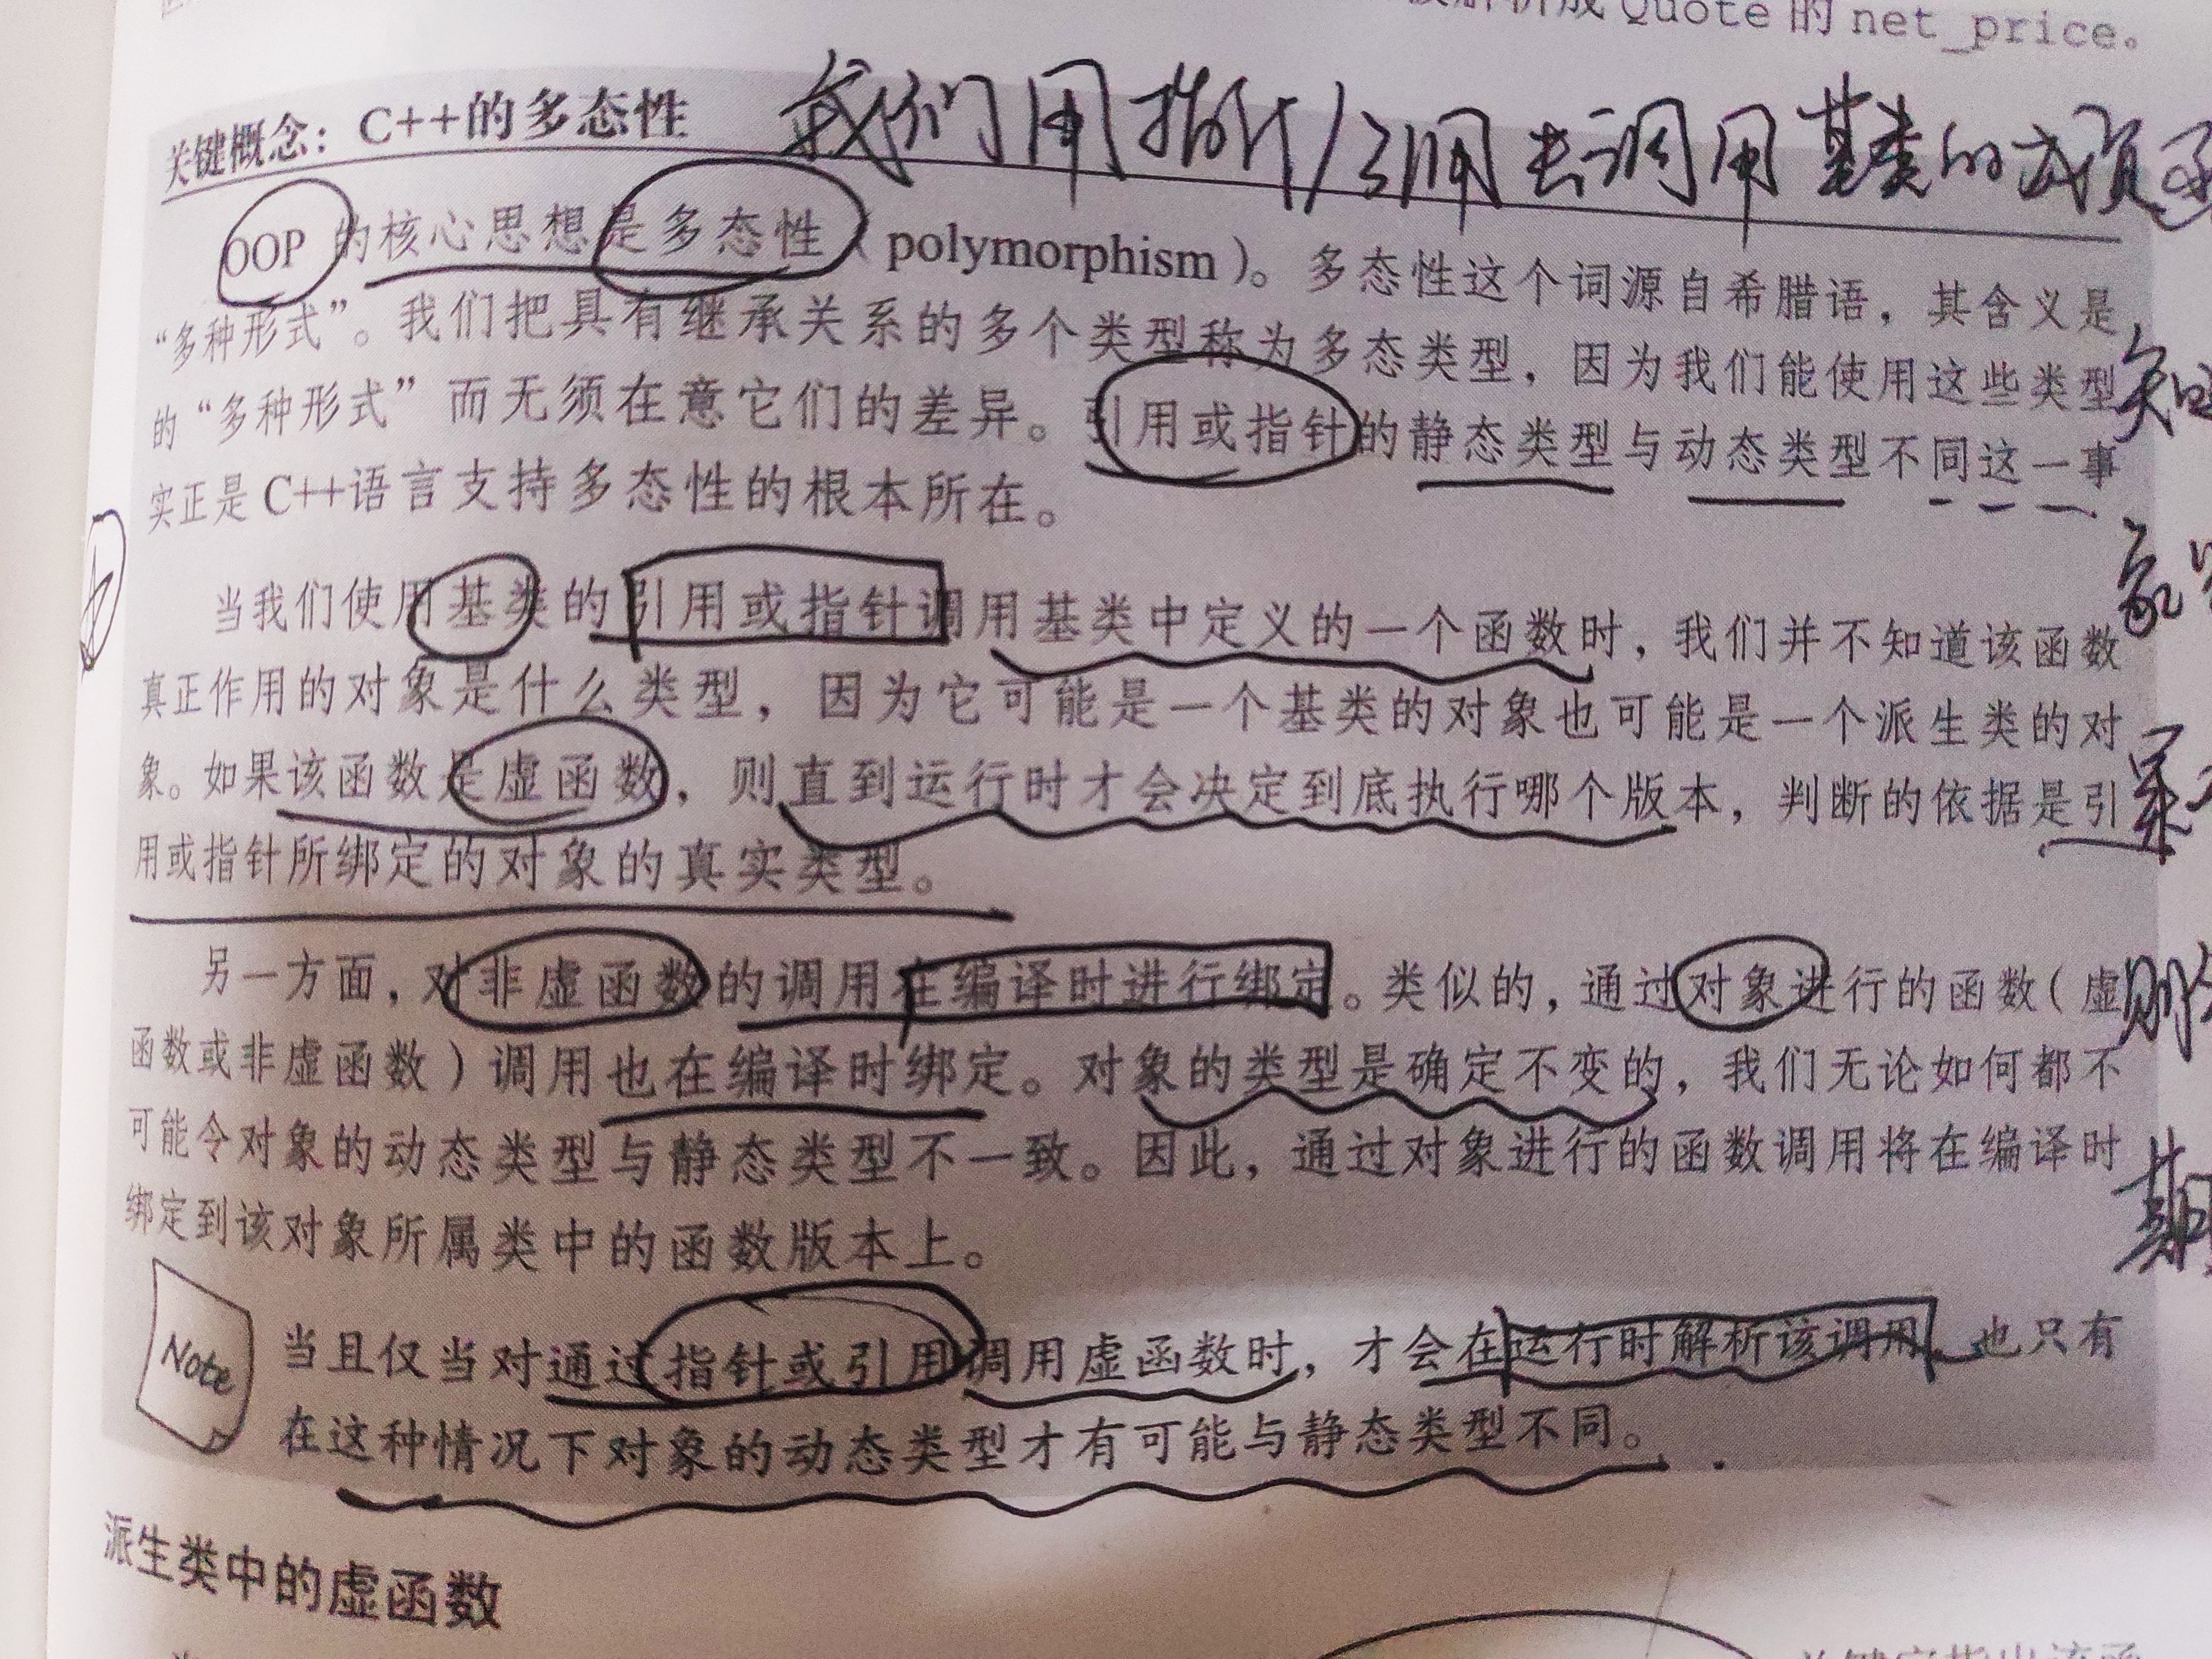 Quote 的 net_price。
关键概念：C++的多态性
我们用指针/引用去调用基类的成员函
OOP 的核心思想是多态性（polymorphism）。多态性这个词源自希腊语，其含义是
“多种形式”。我们把具有继承关系的多个类型称为多态类型，因为我们能使用这些类型
的“多种形式”而无须在意它们的差异。引用或指针的静态类型与动态类型不同这一事
实正是 C++语言支持多态性的根本所在。
当我们使用基类的引用或指针调用基类中定义的一个函数时，我们并不知道该函数
真正作用的对象是什么类型，因为它可能是一个基类的对象也可能是一个派生类的对
象。如果该函数是虚函数，则直到运行时才会决定到底执行哪个版本，判断的依据是引
用或指针所绑定的对象的真实类型。
另一方面，对非虚函数的调用在编译时进行绑定。类似的，通过对象进行的函数（虚
函数或非虚函数）调用也在编译时绑定。对象的类型是确定不变的，我们无论如何都不
可能令对象的动态类型与静态类型不一致。因此，通过对象进行的函数调用将在编译时
绑定到该对象所属类中的函数版本上。
Note
当且仅当对通过指针或引用调用虚函数时，才会在运行时解析该调用，也只有
在这种情况下对象的动态类型才有可能与静态类型不同。
派生类中的虚函数